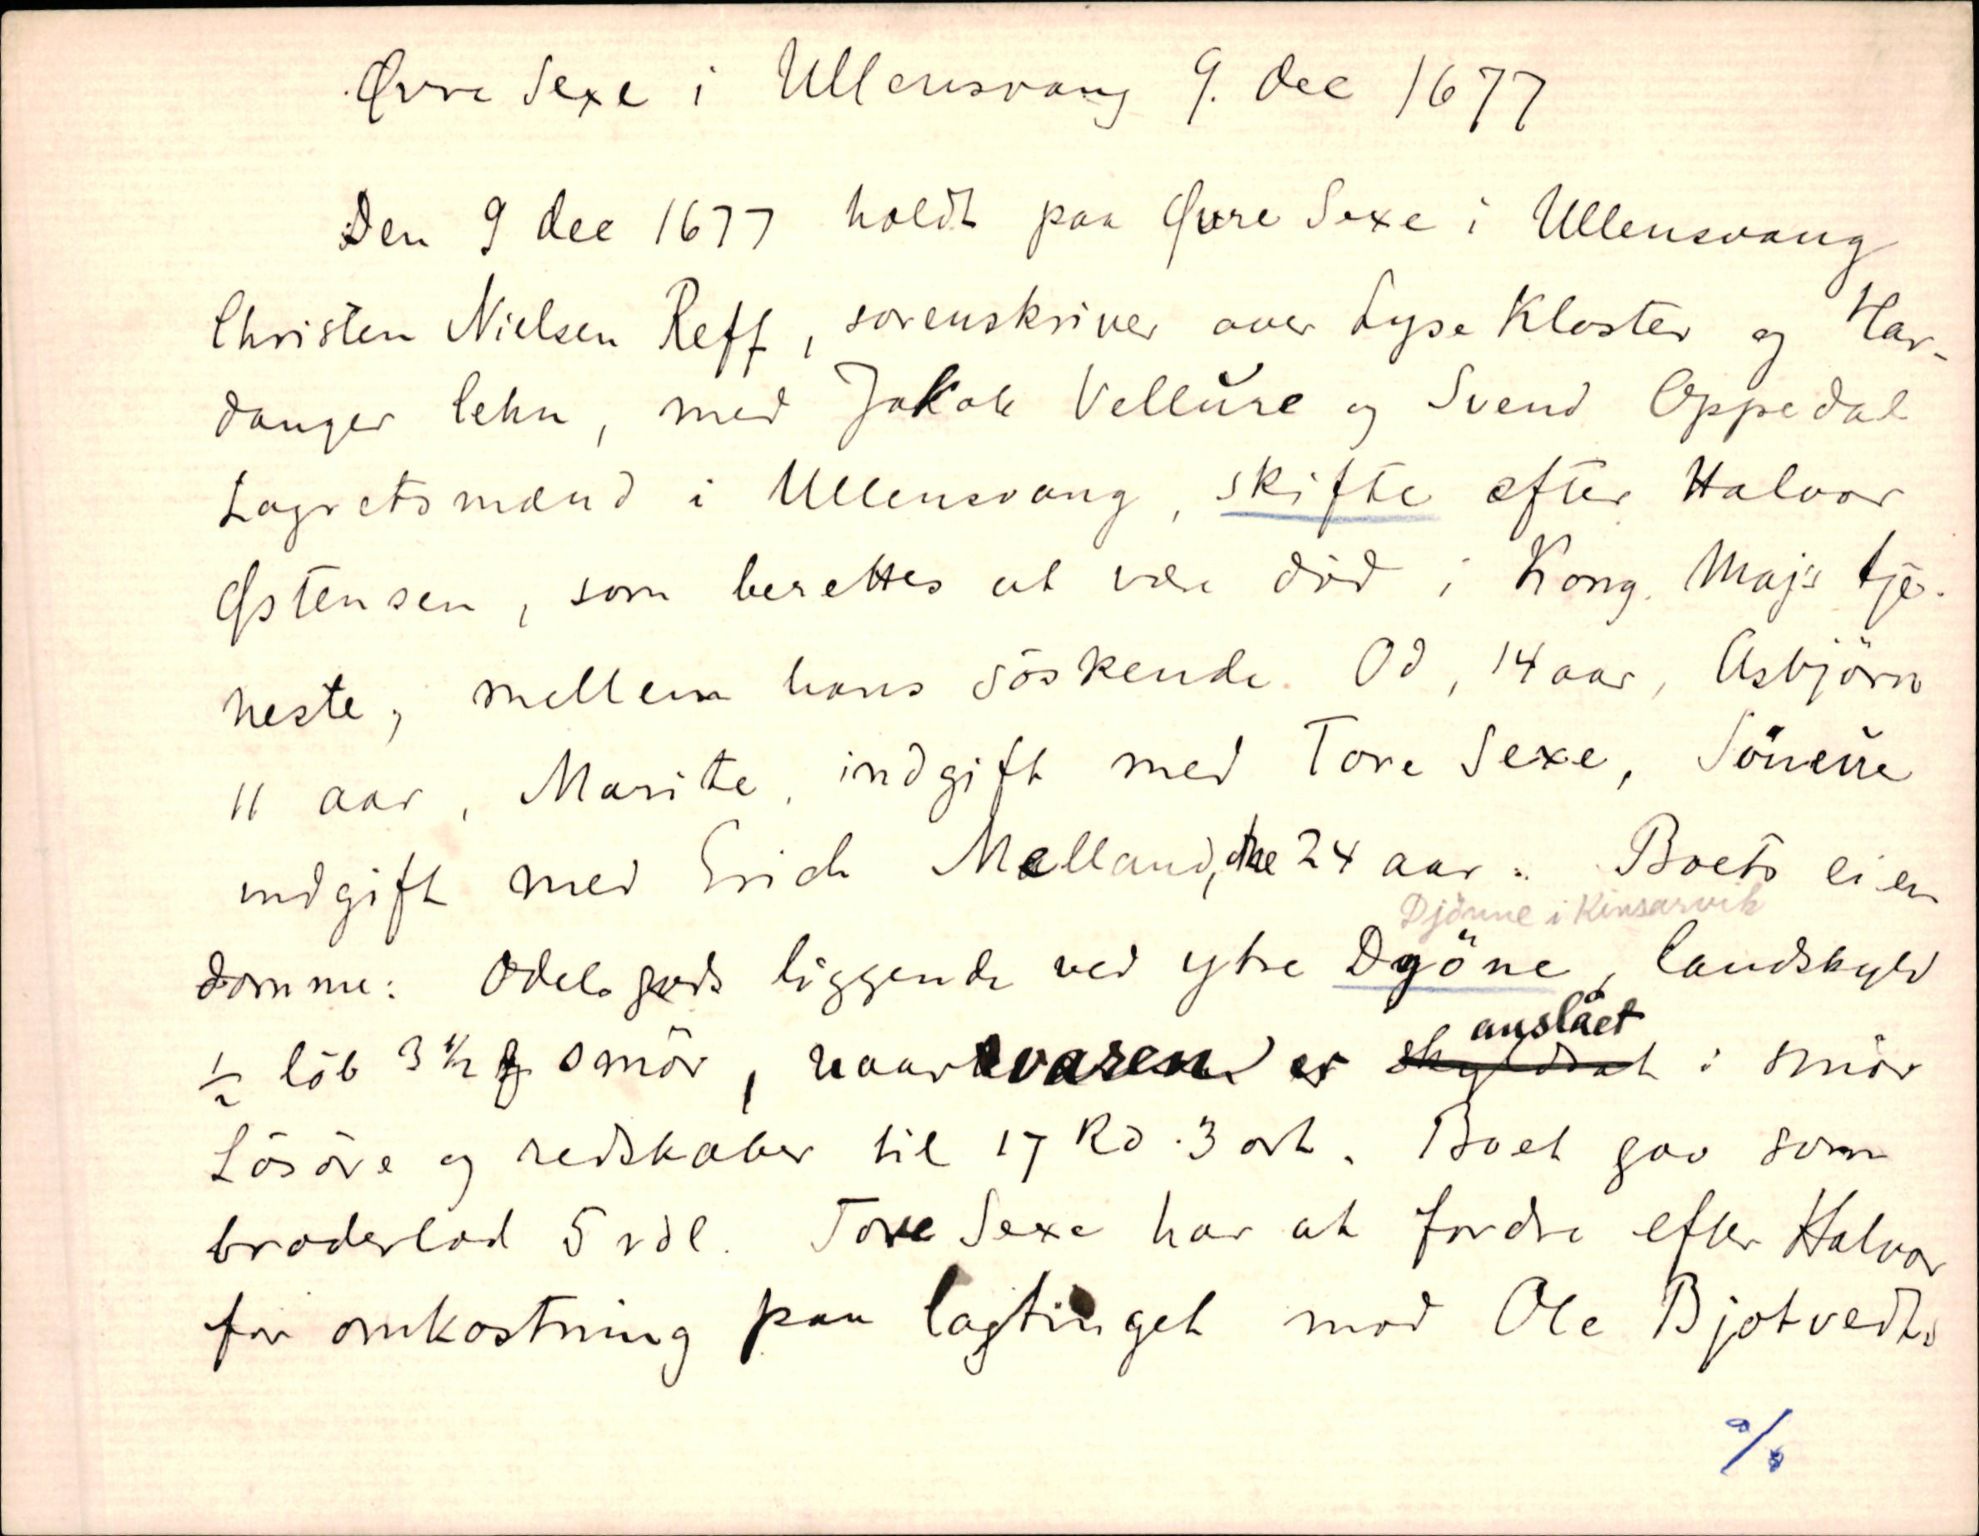 Øvre Sexe i Ullensvang 9. dec 1677
Den 9 dec 1677 holdt paa Øvre Sexe i Ullensvang
Christen Nielsen Reff, sorenskriver over Lyse Kloster og Har-
danger lehn, med Jakob Vellure og Svend Oppedal
Lagretsmænd i Ullensvang, skifte efter Halvor
Østensen, som berettes at være död i Kong. Maj's tje-
neste, mellem hans söskende Od, 14 aar, Asbjörn
11 aar, Marite, indgift med Tore Sexe, Söneve
indgift med Erich Melland, 24 aar. Boets eien
Djönne i Kinsarvik
domme: Odelsgods liggende ved ytre Dgöne, landskyld
anslået
1/2 löb 3 1/2 smör, naar varen er skyldsat i smör
Lösöre og redskaber til 17 Rd. 3 ort. Boet gav som
broderlod 5 rdl. Tore Sexe har at fordre efter Halvor
for omkostning paa lagtinget mod Ole Bjotvedts
%